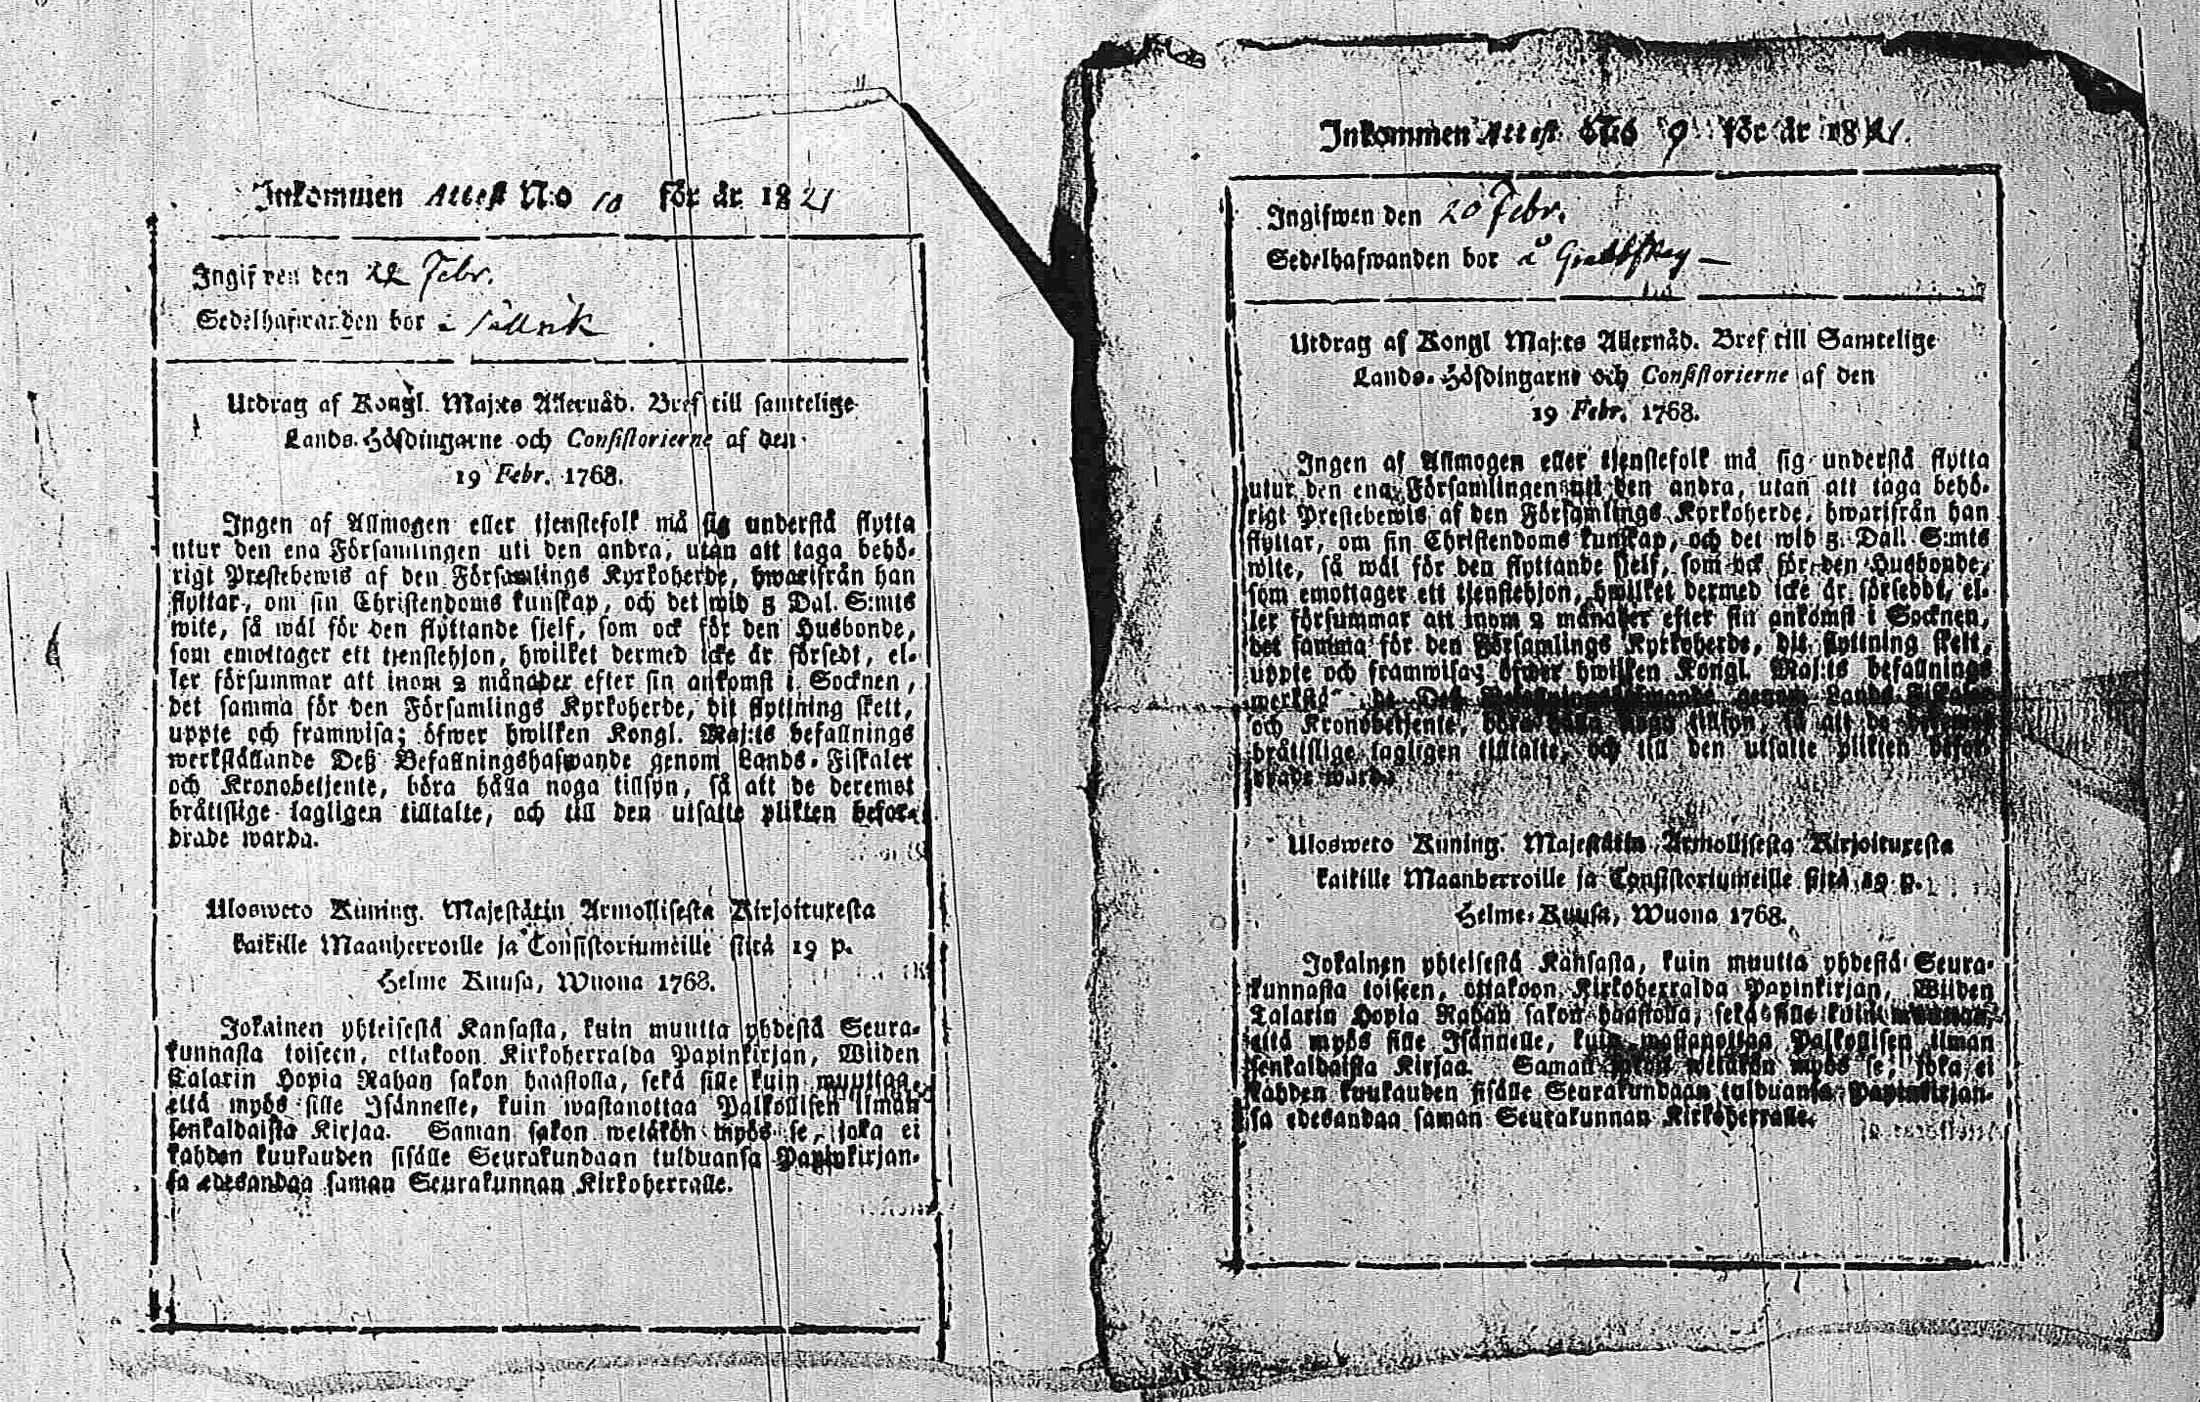 Inkommen Attest N:o 10 för år 1821
Ingifwen den 22 Febr.
Sedelhafwanden bor å
Utdrag af Kongl. Maj:ts Allernåd. Bref till samtelige
Lands-Höfdingarne och Consistorierne af den
19 Febr. 1768.
Ingen af Allmogen eller tjenstefolk må sig understå flytta
utur den ena Församlingen uti den andra, utan att taga behö-
rigt Prestebewis af den Församlings Kyrkoherde, hwarifrån han
flyttar, om sin Christendoms kunskap, och det wid 5 Dal. S:mts
wite, så wäl för den flyttande sjelf, som ock för den Husbonde,
som emottager ett tjenstehjon, hwilket dermed icke är försedt, el-
ler försummar att inom 2 månader efter sin ankomst i Socknen,
det samma för den Församlings Kyrkoherde, dit flyttning skett,
uppte och framwisa; öfwer hwilken Kongl. Maj:ts befallnings
werkställande Deß Befallningshafwande genom Lands-Fiskaler
och Kronobetjente, böra hålla noga tillsyn, så att de deremot
bråtislige lagligen tilltalte, och till den utsatte plikten befor-
drade warda.
Ulosweto Kuning. Majestätin Armollisesta Kirjoituxesta
kaikille Maanherroille ja Consistoriumeille siitä 19 p.
Helme Kuusa, Wuona 1768.
Jokainen yhteisestä Kansasta, kuin muutta yhdestä Seura-
kunnasta toiseen, ottakoon Kirkoherralda Papinkirjan, Wiiden
Talarin Hopia Rahan sakon haastolla, sekä sille kuin muuttaa,
että myös sille Isännelle, kuin wastanottaa Palkollisen ilman
senkaldaista Kirjaa. Saman sakon wetäkön myös se, joka ei
kahden kuukauden sisälle Seurakundaan tulduansa Papinkirjan-
sa edesandaa saman Seurakunnan Kirkoherralle.
Inkommen Attest N:o 9 för år 1821.
Ingifwen den 20 Febr.
Sedelhafwanden bor å
Utdrag af Kongl Maj:ts Allernåd. Bref till Samtelige
Lands-Höfdingarne och Consistorierne af den
19 Febr. 1768.
Ingen af Allmogen eller tjenstefolk må sig understå flytta
utur den ena Församlingen uti den andra, utan att taga behö-
rigt Prestebewis af den Församlings Kyrkoherde, hwarifrån han
flyttar, om sin Christendoms kunskap, och det wid 5. Dal. S:mts
wite, så wäl för den flyttande sjelf, som ock för den Husbonde,
som emottager ett tjenstehjon, hwilket dermed icke är försedt, el-
ler försummar att inom 2 månader efter sin ankomst i Socknen,
det samma för den Församlings Kyrkoherde, dit flyttning skett,
uppte och framwisa; öfwer hwilken Kongl. Maj:ts befallnings
genom Lands-Fiskaler
och Kronobetjente, böra hålla noga tillsyn, så att de deremot
bråtislige lagligen tilltalte, och till den utsatte plikten befor-
drade warda
Ulosweto Kuning. Majestätin Armollisesta Kirjoituxesta
kaikille Maanherroille ja Consistoriumeille siitä 19 p.
Helme-Kuusa, Wuona 1768.
Jokainen yhteisestä Kansasta, kuin muutta yhdestä Seura-
kunnasta toiseen, ottakoon Kirkoherralda Papinkirjan, Wiiden
Talarin Hopia Rahan sakon haastolla, sekä sille kuin muuttaa,
että myös sille Isännelle, kuin wastanottaa Palkollisen ilman
senkaldaista Kirjaa. Saman sakon wetäkön myös se, joka ei
kahden kuukauden sisälle Seurakundaan tulduansa Papinkirjan-
sa edesandaa saman Seurakunnan Kirkoherralle.